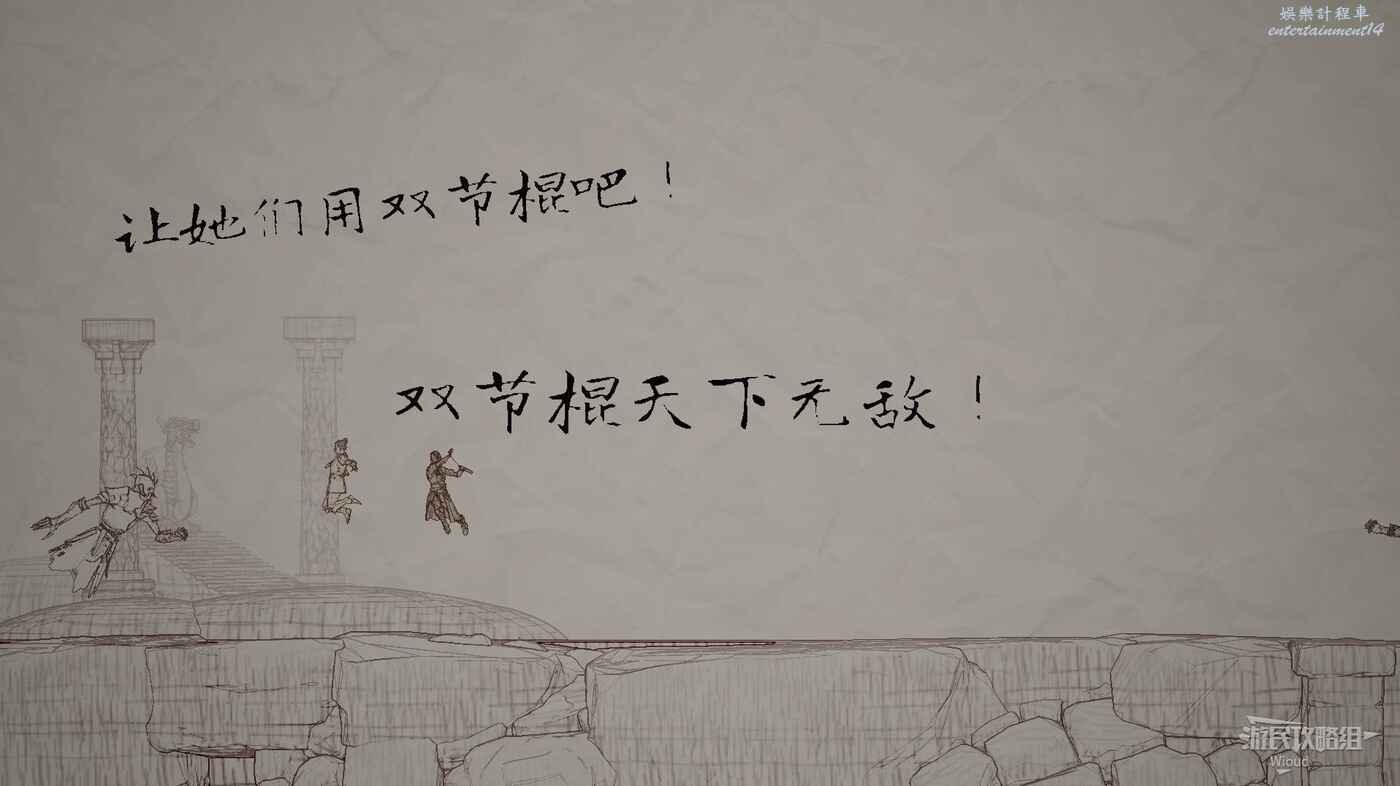 娛樂計程車
entertainment14
让她们用双节棍吧!
双节棍天下无敌!
游民攻略组
Wioud